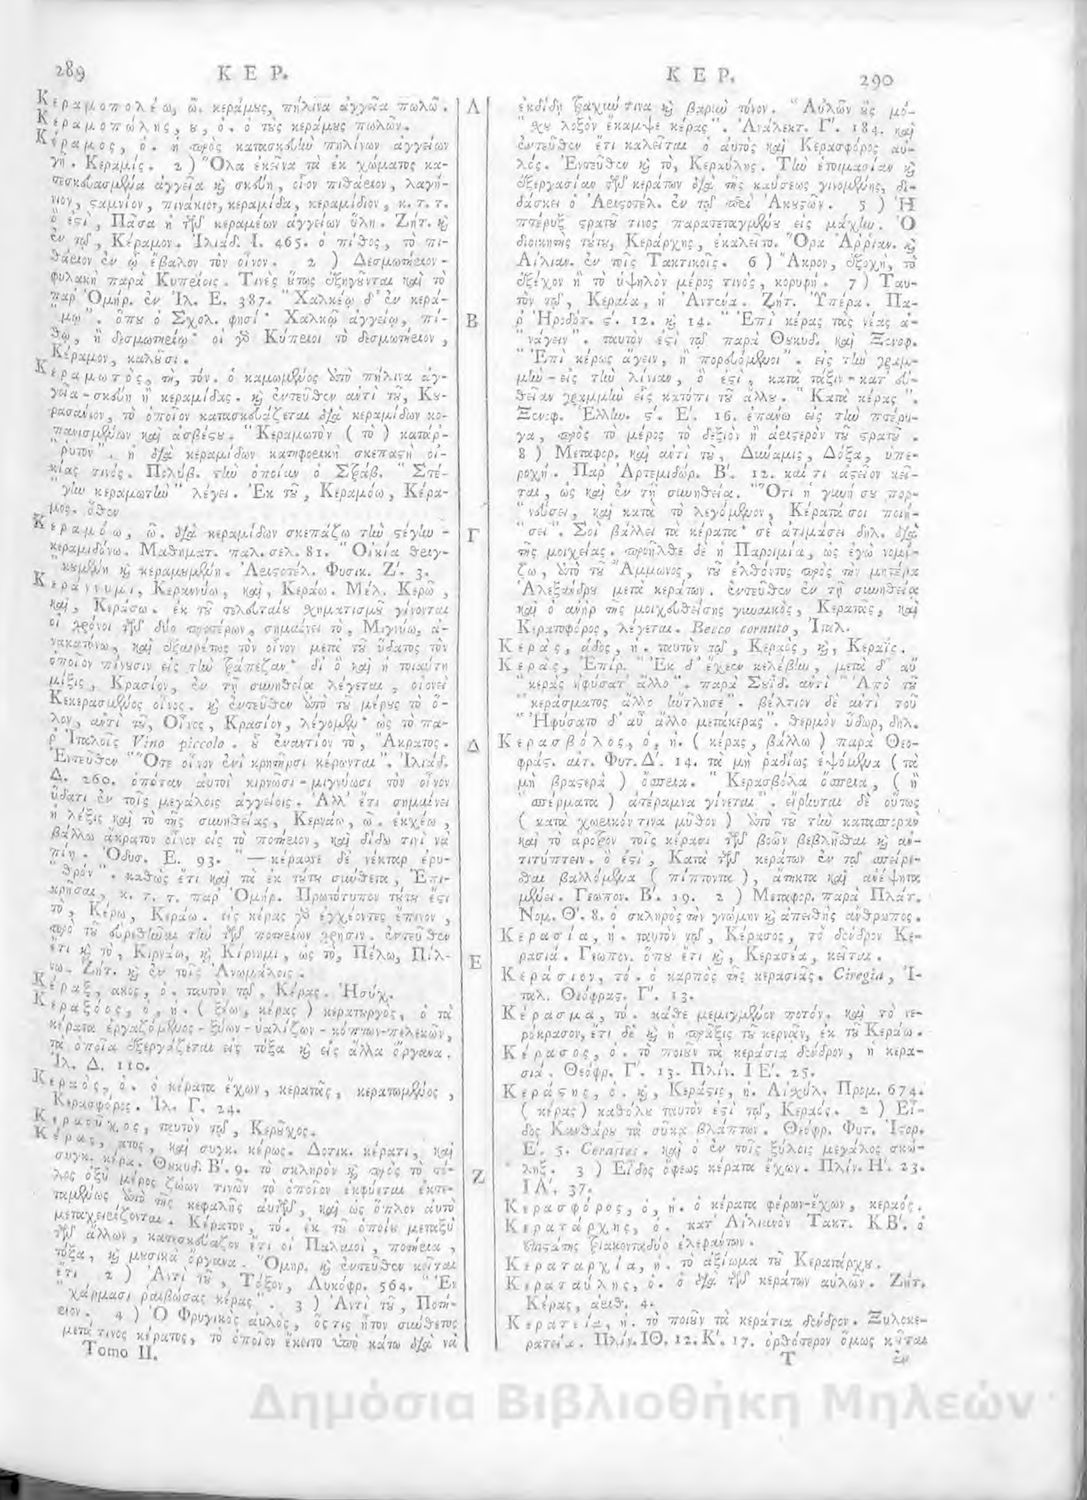 289 ΚΕΡ.
Κεραμοπολέω, ῶ. κεράμους, πήλινα ἀγγεῖα πωλῶ.
Κεραμοπώλης, ου, ὁ. ὁ τοὺς κεράμους πωλῶν.
Κέραμος, ὁ. ἡ πρὸς κατασκευὴν πηλίνων ἀγγείων
γῆ. Κεραμίς. 2) Ὅλα ἐκεῖνα τὰ ἐκ χώματος κα-
τεσκευασμένα ἀγγεῖα καὶ σκεύη, οἷον πιθάριον, λαγή-
νιον, σταμνίον, πινάκιον, κεραμίδα, κεραμίδιον, κ. τ. τ.
ὅ ἐστι, Πᾶσα ἡ τῶν κεραμέων ἀγγείων ὕλη. Ζήτ. καὶ
ἐν τῷ, Κέραμον. Ἰλιάδ. Ι. 465. ὁ πίθος, τὸ πι-
θάριον ἐν ᾧ ἔβαλον τὸν οἶνον. 2) Δεσμωτήριον-
φυλακὴ παρὰ Κυπρίοις. Τινὲς οὕτως ἐξηγοῦνται καὶ τὸ
παρ' Ὁμήρ. ἐν Ἰλ. Ε. 387. "Χαλκέῳ δ' ἐν κερά-
"μῳ". ὅπου ὁ Σχολ. φησί· Χαλκῷ ἀγγείῳ, πί-
θῳ, ἢ δεσμωτηρίῳ· οἱ γὰρ Κύπριοι τὸ δεσμωτήριον,
Κέραμον, καλοῦσι.
Κεραμωτὸς, τὴ, τόν. ὁ καμωμένος ἀπὸ πήλινα ἀγ-
γεῖα-σκεύη ἢ κεραμίδας. καὶ ἐντεῦθεν ἀντὶ τοῦ, Κου-
ρασάνιον, τὸ ὁποῖον κατασκευάζεται διὰ κεραμίδων κο-
πανισμένων καὶ ἀσβέστου. "Κεραμωτὸν (τὸ) κατάρ-
"ρυτον. ἡ διὰ κεραμίδων κατηφορικὴ σκεπαστὴ οἰ-
κίας τινός. Πολύβ. τὴν ὁποίαν ὁ Στράβ. "Στέ-
"γην κεραμωτὴν" λέγει. Ἐκ τοῦ, Κεραμόω, Κέρα-
μος. ὅθεν
Κεραμόω, ῶ. διὰ κεραμίδων σκεπάζω τὴν στέγην-
κεραμιδόνω. Μαθηματ. παλ. σελ. 81. "Οἰκία θριγ-
"κωμένη καὶ κεραμωμένη. Ἀριστοτέλ. Φυσικ. Ζ'. 3.
Κεράννυμι, Κεραννύω, καὶ, Κεράω. Μέλ. Κερῶ,
καὶ, Κεράσω. ἐκ τοῦ τελευταίου σχηματισμοῦ γίνονται
οἱ χρόνοι τῶν δύο προτέρων, σημαίνει τὸ, Μιγνύω, ἀ-
νακατόνω, καὶ ἐξαιρέτως τὸν οἶνον μετὰ τοῦ ὕδατος τὸν
ὁποῖον πίνουσιν εἰς τὴν τράπεζαν· δι' ὃ καὶ ἡ τοιαύτη
μίξις, Κρασίον, ἐν τῇ συνηθείᾳ λέγεται, οἱονεὶ
Κεκερασμένος οἶνος. καὶ ἐντεῦθεν ἀπὸ τοῦ μέρους τὸ ὅ-
λον, ἀντὶ τοῦ, Οἶνος, Κρασίον, λέγομεν· ὡς τὸ πα-
ρ' Ἰταλοῖς Vino piccolo. οὗ ἐναντίον τὸ, Ἄκρατος.
Ἐντεῦθεν "Ὅτε οἶνον ἐνὶ κρητῆρσι κέρωνται". Ἰλιάδ.
Δ. 260. ὁπόταν αὐτοὶ κιρνῶσι-μιγνύωσι τὸν οἶνον
ὕδατι ἐν τοῖς μεγάλοις ἀγγείοις. Ἀλλ' ἔτι σημαίνει
ἡ λέξις καὶ τὸ τῆς συνηθείας, Κερνάω, ῶ. ἐκχέω,
βάλλω ἄκρατον οἶνον εἰς τὸ ποτήριον, καὶ δίδω τινὶ νὰ
πίῃ. Ὀδυσ. Ε. 93. "—κέρασσε δὲ νέκταρ ἐρυ-
"θρόν". καθὼς ἔτι καὶ τὰ ἐκ τούτου σύνθετα, Ἐπι-
κρῆσαι, κ. τ. τ. παρ' Ὁμήρ. Πρωτότυπον τούτου ἐστὶ
τὸ, Κέρω, Κεράω. εἰς κέρας γὰρ ἐγχέοντες ἔπινον,
πρὸ τοῦ εὑρεθῆναι τὴν τῶν ποτηρίων χρῆσιν. ἐντεῦθεν
ἔτι καὶ τὸ, Κιρνάω, καὶ, Κίρνημι, ὡς τὸ, Πέλω, Πιλ-
νῶ. Ζήτ. καὶ ἐν τοῖς Ἀνωμάλοις.
Κέραξ, ακος, ὁ. ταυτὸν τῷ, Κέρας. Ἡσύχ.
Κεραξόος, ὁ, ἡ. (ξέω, κέρας) κερατουργὸς, ὁ τὰ
κέρατα ἐργαζόμενος-ξύων-υαλίζων-κόπτων-πελεκῶν,
τὰ ὁποῖα ἐξεργάζεται εἰς τόξα καὶ εἰς ἄλλα ὄργανα.
Ἰλ. Δ. 110.
Κεραὸς, ὁ. ὁ κέρατα ἔχων, κερατᾶς, κερατωμένος,
Κερασφόρος. Ἰλ. Γ. 24.
Κεραοῦχος, ταυτὸν τῷ, Κεροῦχος.
Κέρας, ατος, καὶ συγκ. κέρως. Δοτικ. κέρατι, καὶ
συγκ. κέρᾳ. Θουκυδ. Β'. 9. τὸ σκληρὸν καὶ πρὸς τὸ τέ-
λος ὀξὺ μέρος ζώων τινῶν τὸ ὁποῖον ἐκφύεται ἐκτε-
ταμένως ἀπὸ τῆς κεφαλῆς αὐτῶν, καὶ ὡς ὅπλον αὐτὸ
μεταχειρίζονται. Κέρατον, τό. ἐκ τοῦ ὁποίου μεταξὺ
τῶν ἄλλων, κατεσκεύαζον ἔτι οἱ Παλαιοὶ, ποτήρια,
τόξα, καὶ μουσικὰ ὄργανα. Ὁμηρ. καὶ ἐντεῦθεν κεῖται
ἔτι 2) Ἀντὶ τοῦ, Τόξον, Λυκόφρ. 564. "Ἐν
"χάρμαισι ῥαιβώσας κέρας". 3) Ἀντὶ τοῦ, Ποτή-
ριον. 4) Ὁ Φρυγικὸς αὐλὸς, ὅς τις ἦτον σύνθετος
μετά τινος κέρατος, τὸ ὁποῖον ἔκειτο ὑπὸ κάτω διὰ νὰ
Tomo II.
Α
Β
Γ
Δ
Ε
Ζ
ΚΕΡ. 290
ἐκδίδῃ τραχύν τινα καὶ βαρὺν τόνον. "Αὐλῶν οὓς μό-
"χου λοξὸν ἔκαμψε κέρας". Ἀνάλεκτ. Γ'. 184. καὶ
ἐντεῦθεν ἔτι καλεῖται ὁ αὐτὸς καὶ Κερασφόρος αὐ-
λός. Ἐντεῦθεν καὶ τὸ, Κεραύλης. Τὴν ἑτοιμασίαν καὶ
ἐξεργασίαν τῶν κεράτων διὰ τῆς καύσεως γινομένης, δι-
δάσκει ὁ Ἀριστοτέλ. ἐν τῷ περὶ Ἀκουστῶν. 5) Ἡ
πτέρυξ στρατοῦ τινος παρατεταγμένου εἰς μάχην. Ὁ
διοικητὴς τούτου, Κεράρχης, ἐκαλεῖτο. Ὅρα Ἀρριαν. καὶ
Αἰλιαν. ἐν τοῖς Τακτικοῖς. 6) Ἄκρον, ἐξοχὴ, τὸ
ἐξέχον ἢ τὸ ὑψηλὸν μέρος τινὸς, κορυφή. 7) Ταυ-
τὸν τῷ, Κεραία, ἡ Ἀντένα. Ζήτ. Ὑπέρα. Πα-
ρ' Ἡροδότ. ς'. 12. καὶ 14. "Ἐπὶ κέρας τὰς νέας ἀ-
"νάγειν". ταυτόν ἐστι τῷ παρὰ Θουκυδ. καὶ Ξενοφ.
"Ἐπὶ κέρως ἄγειν, ἢ πορευόμενοι". εἰς τὴν γραμ-
μὴν-εἰς τὴν λίνεαν, ὅ ἐστι, κατὰ τάξιν-κατ' εὐ-
θεῖαν γραμμὴν εἰς κατόπι τοῦ ἄλλου. "Κατὰ κέρας".
Ξενοφ. Ἑλλην. ς'. Ε'. 16. ἐπάνω εἰς τὴν πτέρυ-
γα, πρὸς τὸ μέρος τὸ δεξιὸν ἢ ἀριστερὸν τοῦ στρατοῦ.
8) Μεταφορ. καὶ ἀντὶ τοῦ, Δύναμις, Δόξα, ὑπε-
ροχή. Παρ' Ἀρτεμιδώρ. Β'. 12. καί τι ἀστεῖον κεῖ-
ται, ὡς καὶ ἐν τῇ συνηθείᾳ. "Ὅτι ἡ γυνή σου πορ-
"νεύσει, καὶ κατὰ τὸ λεγόμενον, Κέρατά σοι ποιή-
"σει". Σοὶ βάλλει τὰ κέρατα· σὲ ἀτιμάσει δηλ. διὰ
τῆς μοιχείας. προῆλθε δὲ ἡ Παροιμία, ὡς ἐγὼ νομί-
ζω, ἀπὸ τοῦ Ἄμμωνος, τοῦ ἐλθόντος πρὸς τὴν μητέρα
Ἀλεξάνδρου μετὰ κεράτων. ἐντεῦθεν ἐν τῇ συνηθείᾳ
καὶ ὁ ἀνὴρ τῆς μοιχευθείσης γυναικὸς, Κερατᾶς, καὶ
Κερατοφόρος, λέγεται. Becco cornuto, Ἰταλ.
Κεράς, άδος, ἡ. ταυτὸν τῷ, Κεραὸς, καὶ, Κεραΐς.
Κεράς, Ἐπίῤ. "Ἐκ δ' ἔχεεν κελέβην, μετὰ δ' αὖ
"κερὰς ἠφύσατ' ἄλλο". παρὰ Σουΐδ. ἀντὶ "Ἀπὸ τοῦ
"κεράσματος ἄλλο ἤντλησε". βέλτιον δὲ ἀντὶ τοῦ
"Ἠφύσατο δ' αὖ ἄλλο μετάκερας". θερμὸν ὕδωρ, δηλ.
Κερασβόλος, ὁ, ἡ. (κέρας, βάλλω) παρὰ Θεο-
φράστ. αἰτ. Φυτ. Δ'. 14. τὰ μὴ ῥαδίως ἑψόμενα (τὰ
μὴ βραστερὰ) ὄσπρια. "Κερασβόλα ὄσπρια, (ἢ
"σπέρματα) ἀτέραμνα γίνεται". εἴρηνται δὲ οὕτως
(κατὰ χωρικόν τινα μῦθον) ἀπὸ τοῦ τὴν κατασπορὰν
καὶ τὸ ἄροτρον τοῖς κέρασι τῶν βοῶν βεβλῆσθαι καὶ ἀν-
τιτύπτειν. ὅ ἐστι, Κατὰ τῶν κεράτων ἐν τῷ σπείρε-
σθαι βαλλόμενα (πίπτοντα), ἄτηκτα καὶ ἀνέψητα
μένει. Γεωπον. Β'. 19. 2) Μεταφορ. παρὰ Πλάτ.
Νομ. Θ'. 8. ὁ σκληρὸς τὴν γνώμην καὶ ἀπειθὴς ἄνθρωπος.
Κερασία, ἡ. ταυτὸν τῷ, Κέρασος, τὸ δένδρον Κε-
ρασιά. Γεωπον. ὅπου ἔτι καὶ, Κερασέα, κεῖται.
Κεράσιον, τό. ὁ καρπὸς τῆς κερασιᾶς. Ciregia, Ἰ-
ταλ. Θεόφραστ. Γ'. 13.
Κέρασμα, τό. κάθε μεμιγμένον ποτόν. καὶ τὸ νε-
ρόκρασον, ἔτι δὲ καὶ ἡ πρᾶξις τοῦ κερνᾶν, ἐκ τοῦ Κεράω.
Κέρασος, ὁ. τὸ ποιοῦν τὰ κεράσια δένδρον, ἡ κερα-
σιά. Θεόφρ. Γ'. 13. Πλίν. ΙΕ'. 25.
Κεράστης, ὁ. καὶ, Κεράστις, ἡ. Αἰσχύλ. Προμ. 674.
(κέρας) καθόλου ταυτόν ἐστι τῷ, Κεραός. 2) Εἶ-
δος Κανθάρου τὰ σῦκα βλάπτων. Θεόφρ. Φυτ. Ἱστορ.
Ε'. 5. Cerastes. καὶ ὁ ἐν τοῖς ξύλοις μεγάλος σκώ-
ληξ. 3) Εἶδος ὄφεως κέρατα ἔχων. Πλίν. Η'. 23.
ΙΑ'. 37.
Κερασφόρος, ὁ, ἡ. ὁ κέρατα φέρων-ἔχων, κεραός.
Κερατάρχης, ὁ. κατ' Αἰλιανὸν Τακτ. ΚΒ'. ὁ
ἐπιστάτης τριακονταδύο ἐλεφάντων.
Κεραταρχία, ἡ. τὸ ἀξίωμα τοῦ Κερατάρχου.
Κεραταύλης, ὁ. ὁ διὰ τῶν κεράτων αὐλῶν. Ζήτ.
Κέρας, ἀριθ. 4.
Κερατεία, ἡ. τὸ ποιοῦν τὰ κεράτια δένδρον. Ξυλοκε-
ρατεία. Πλίν. ΙΘ. 12. Κ'. 17. ὀρθότερον ὅμως κεῖται
Τ ἐν
Δημόσια Βιβλιοθήκη Μηλεών